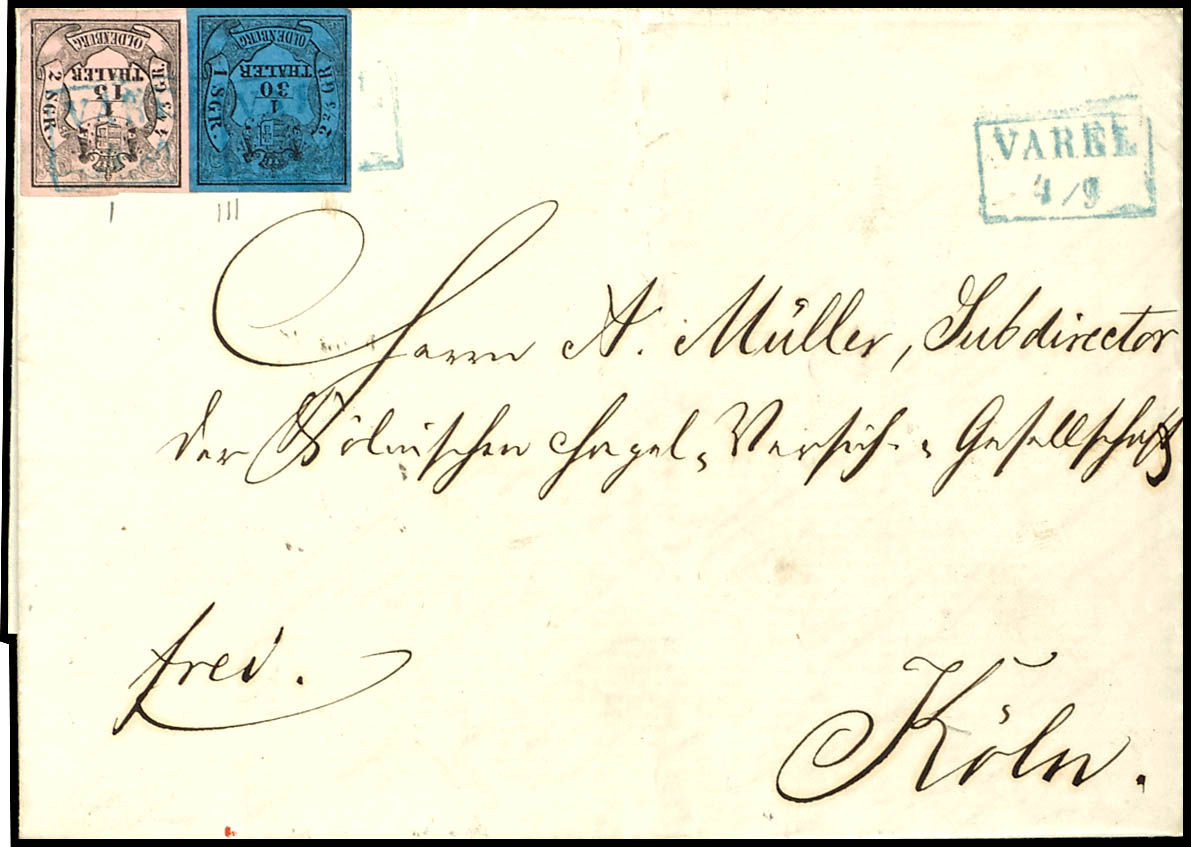 OLDENBURG
THALER
1
15
2 SGR.
4 4/5 GR.
OLDENBURG
THALER
1
30
1 SGR.
2 2/5 GR.
VAREL
4/9
I III
Herrn A. Müller, Subdirector
der Kölnischen Hagel-Versich.-Gesellschaft
frei.
Köln.